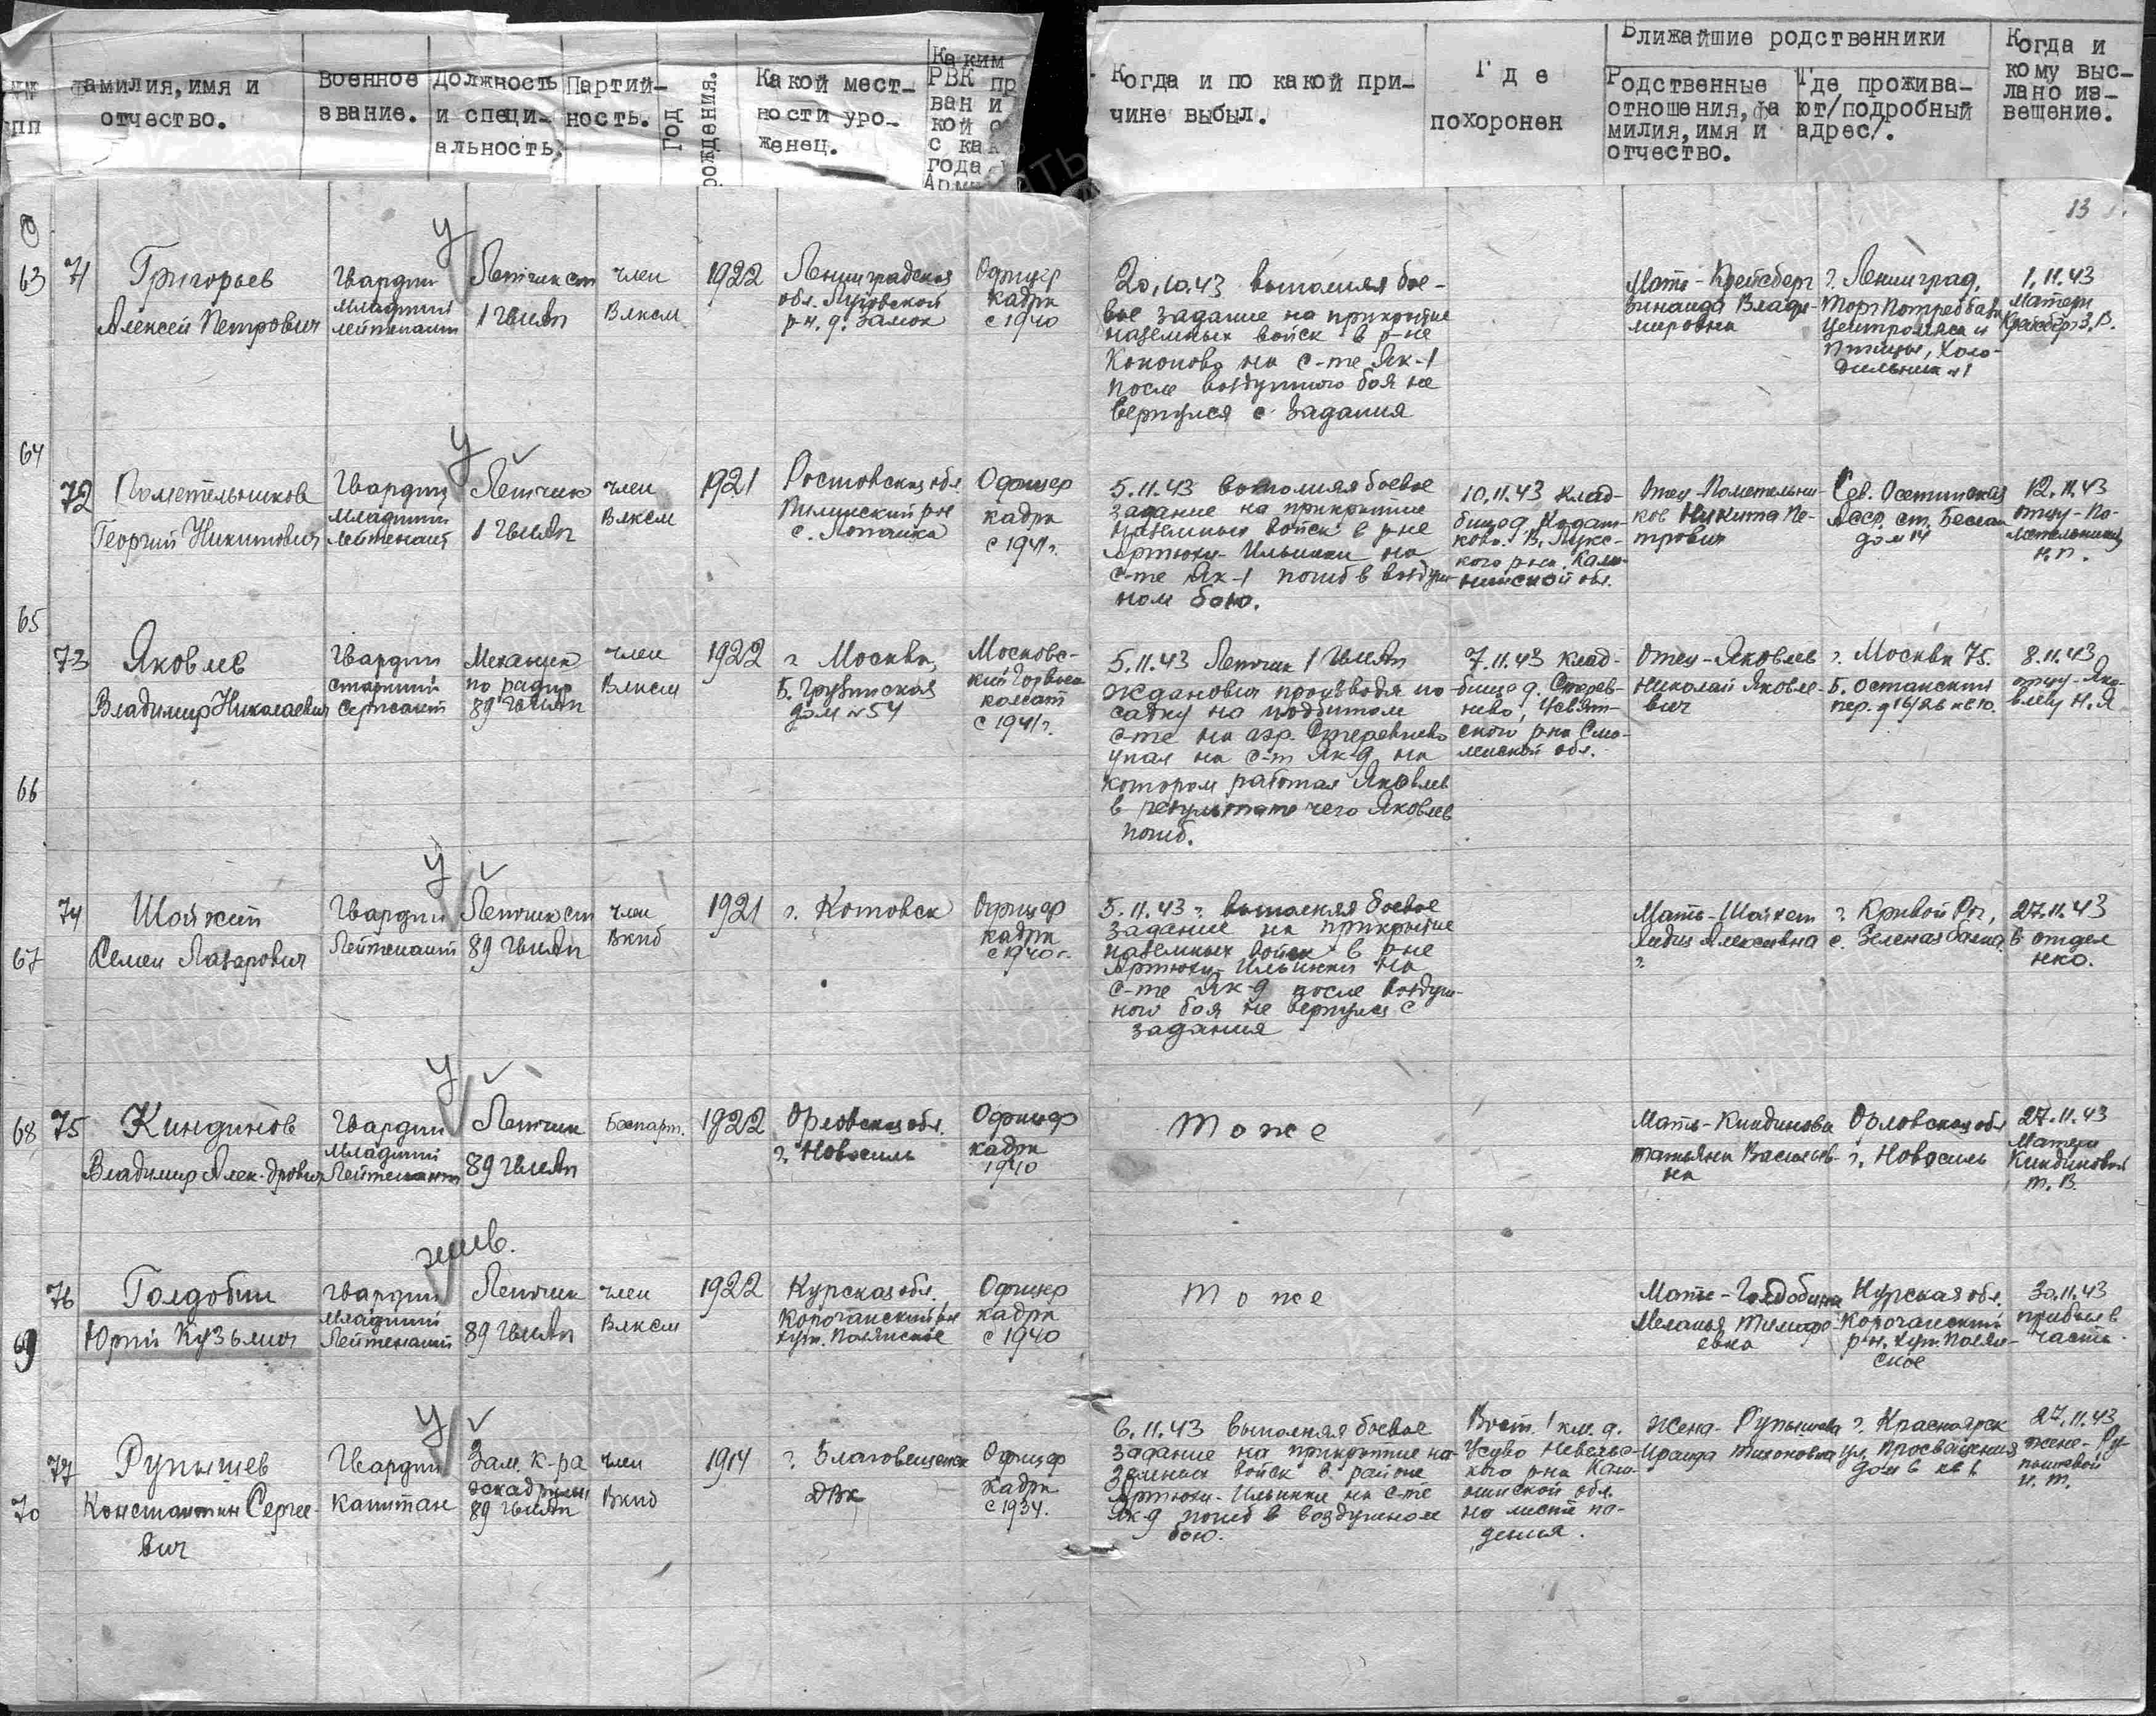 фамилия, имя и
отчество.
Военное
звание.
Должность
и специ-
альность.
Партий-
ность.
Год
рождения.
Какой мест-
ности уро-
женец.
Каким
РВК пр
ван и
кой о
с как
года
Арми
Когда и по какой при-
чине выбыл.
Где
похоронен
Ближайшие родственники
Родственные
отношения, фа
милия, имя и
отчество.
Где прожива-
ют/подробный
адрес/.
Когда и
кому выс-
лано из-
вещение.
13
63
71
Григорьев
Алексей Петрович
Гвардии
младший
лейтенант
У
Летчик ст
1 ГвИАп
член
Влксм
1922
Ленинградская
обл. Лужовской
р-н. д. Замок
Офицер
кадра
с 1940
20.10.43 выполняя бое-
вое задание на прикрытие
наземных войск в р-не
Кононово на с-те Як-1
после воздушного боя не
вернулся с задания
Мать - Крейсберг
Зинаида Влади-
мировна
г. Ленинград,
Центромяса и
птицы, Холо-
дильник №1
1.11.43
Матери
Крейсберг З.В.
64
72
Пометельников
Георгий Никитович
Гвардии
младший
лейтенант
У
Летчик
1 ГвИАп
член
Влксм
1921
Ростовская обл
с. Латанка
Офицер
кадра
с 1941г.
5.11.43 выполняя боевое
задание на прикрытие
наземных войск в р-не
Артюхи-Ильинки на
с-те Як-1 погиб в воздуш-
ном бою.
10.11.43 Клад-
бище д.
В. Лукс-
кого р-на. Кали-
нинской обл.
Отец - Пометельни-
ков Никита Пе-
трович
Сев. Осетинская
Асср. ст. Беслан
дом 14
12.11.43
отцу - По-
метельникову
Н.П.
65
73
Яковлев
Владимир Николаевич
Гвардии
старший
сержант
Механик
по радио
89 ГвИАп
член
Влксм
1922
г. Москва,
Б. Грузинская
дом №54
Московс-
кий Горвоен
комат
с 1941г.
5.11.43 Летчик 1 ГвИАп
Жданович производя по
садку на подбитом
с-те на аэр. Стеревнево
упал на с-т Як-9 на
котором работал Яковлев
в результате чего Яковлев
погиб.
7.11.43 Клад-
бище д. Стерев-
нево, Усвят-
ского р-на Смо-
ленской обл.
Отец - Яковлев
Николай Яковле-
вич
г. Москва 75.
Б. Останский
пер. д 16/26 кв 10.
8.11.43
отцу - Яко-
влеву Н.Я
66
74
Шойхет
Семен Лазарович
Гвардии
Лейтенант
У
Летчик ст
89 ГвИАп
член
Вкпб
1921
г. Котовск
Офицер
кадра
с 1940г.
5.11.43 г. выполняя боевое
задание на прикрытие
наземных войск в р-не
Артюхи-Ильинки на
с-те Як-9 после воздуш-
ного боя не вернулся с
задания
Мать - Шойхет
Лидия Алексеевна
?
г. Кривой Рог,
с. Зеленая балка
27.11.43
в отдел
нко.
67
68
75
Киндинов
Владимир Алек-дрович
Гвардии
младший
Лейтенант
У
Летчик
89 ГвИАп
Беспарт.
1922
Орловская обл
г. Новосиль
Офицер
кадра
1940
Тоже
Мать - Киндинова
Татьяна Васильев-
на
Орловская обл
г. Новосиль
27.11.43
Матери
Киндиновой
Т.В.
76
Голдобин
Юрий Кузьмич
Гвардии
младший
Лейтенант
жив.
Летчик
89 ГвИАп
член
Влксм
1922
Курская обл.
Корочанский р-н
хут. Полянское
Офицер
кадра
с 1940
Тоже
Мать - Голдобина
Меланья Тимофе
евна
Курская обл.
Корочанский
р-н. хут. Полян-
ское
30.11.43
прибыл в
часть.
69
77
Рупышев
Константин Сергее-
вич
Гвардии
Капитан
У
Зам. к-ра
эскадрильи
89 ГвИАп
член
Вкпб
1914
г. Благовещенск
ДВК
Офицер
кадра
с 1934.
6.11.43 выполняя боевое
задание на прикрытие на-
земных войск в районе
Артюхи-Ильинки на с-те
Як-9 погиб в воздушном
бою.
Вост. 1 км. д.
Усово Невельс-
кого р-на Кали-
нинской обл.
на месте па-
дения.
Жена - Рупышева
Ираида Тихоновна
г. Красноярск
ул. Просвещения
дом 6 кв 6
27.11.43
жене - Ру-
пышевой
И.Т.
70